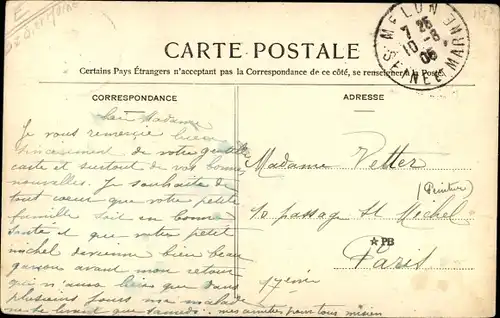 MELUN
7 25
10 -8
05
SEINE ET MARNE
CARTE POSTALE
Certains Pays Étrangers n'acceptant pas la Correspondance de ce côté, se renseigner à la Poste.
CORRESPONDANCE
ADRESSE
Madame
Je vous remercie bien
sincèrement de votre gentille
carte et surtout de vos bonnes
nouvelles. Je souhaite de
tout cœur que votre petite
famille soit en bonne
santé et que votre petit
michel devienne bien beau
garçon avant mon retour
qui n'aura lieu que dans
plusieurs jours ma
que samedi. mes amitiés pour tous
Madame Vetter
(Peintre)
10 passage St Michel
☆PB
Paris
17eme